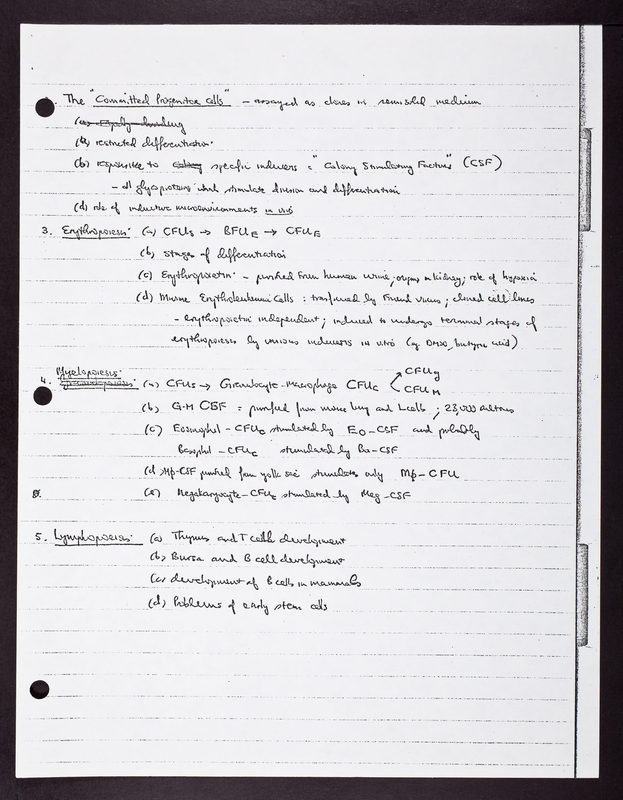 . The "Committed Progenitor Cells" - assayed as clones in semisolid medium
(a) rapidly dividing
(b) restricted differentiation
(b) responsive to specific inducers: "Colony Stimulating Factors" (CSF)
- all glycoproteins which stimulate division and differentiation
(d) role of inductive microenvironments in vivo
3. Erythropoiesis: (a) CFUs → BFUE → CFUE
(b) stages of differentiation
(c) Erythropoietin - purified from human urine; origin in kidney; role of hypoxia
(d) Murine Erythroleukemia Cells: transformed by Friend virus; cloned cell lines
- erythropoietin independent; induced to undergo terminal stages of
erythropoiesis by various inducers in vitro (eg DMSO, butyric acid)
Myelopoiesis: CFUg
4. (a) CFUs → Granulocyte-Macrophage CFUc CFUM
(b) G-M CSF = purified from mouse lung and L cells; 23,000 daltons
(c) Eosinophil - CFUc stimulated by EO-CSF and probably
Basophil - CFUc stimulated by Ba-CSF
(d) Mφ-CSF purified from yolk sac stimulates only Mφ-CFU
(e) Megakaryocyte-CFUc stimulated by Meg-CSF
5. Lymphopoiesis: (a) Thymus and T cell development
(b) Bursa and B cell development
(c) development of B cells in mammals
(d) Problems of early stem cells